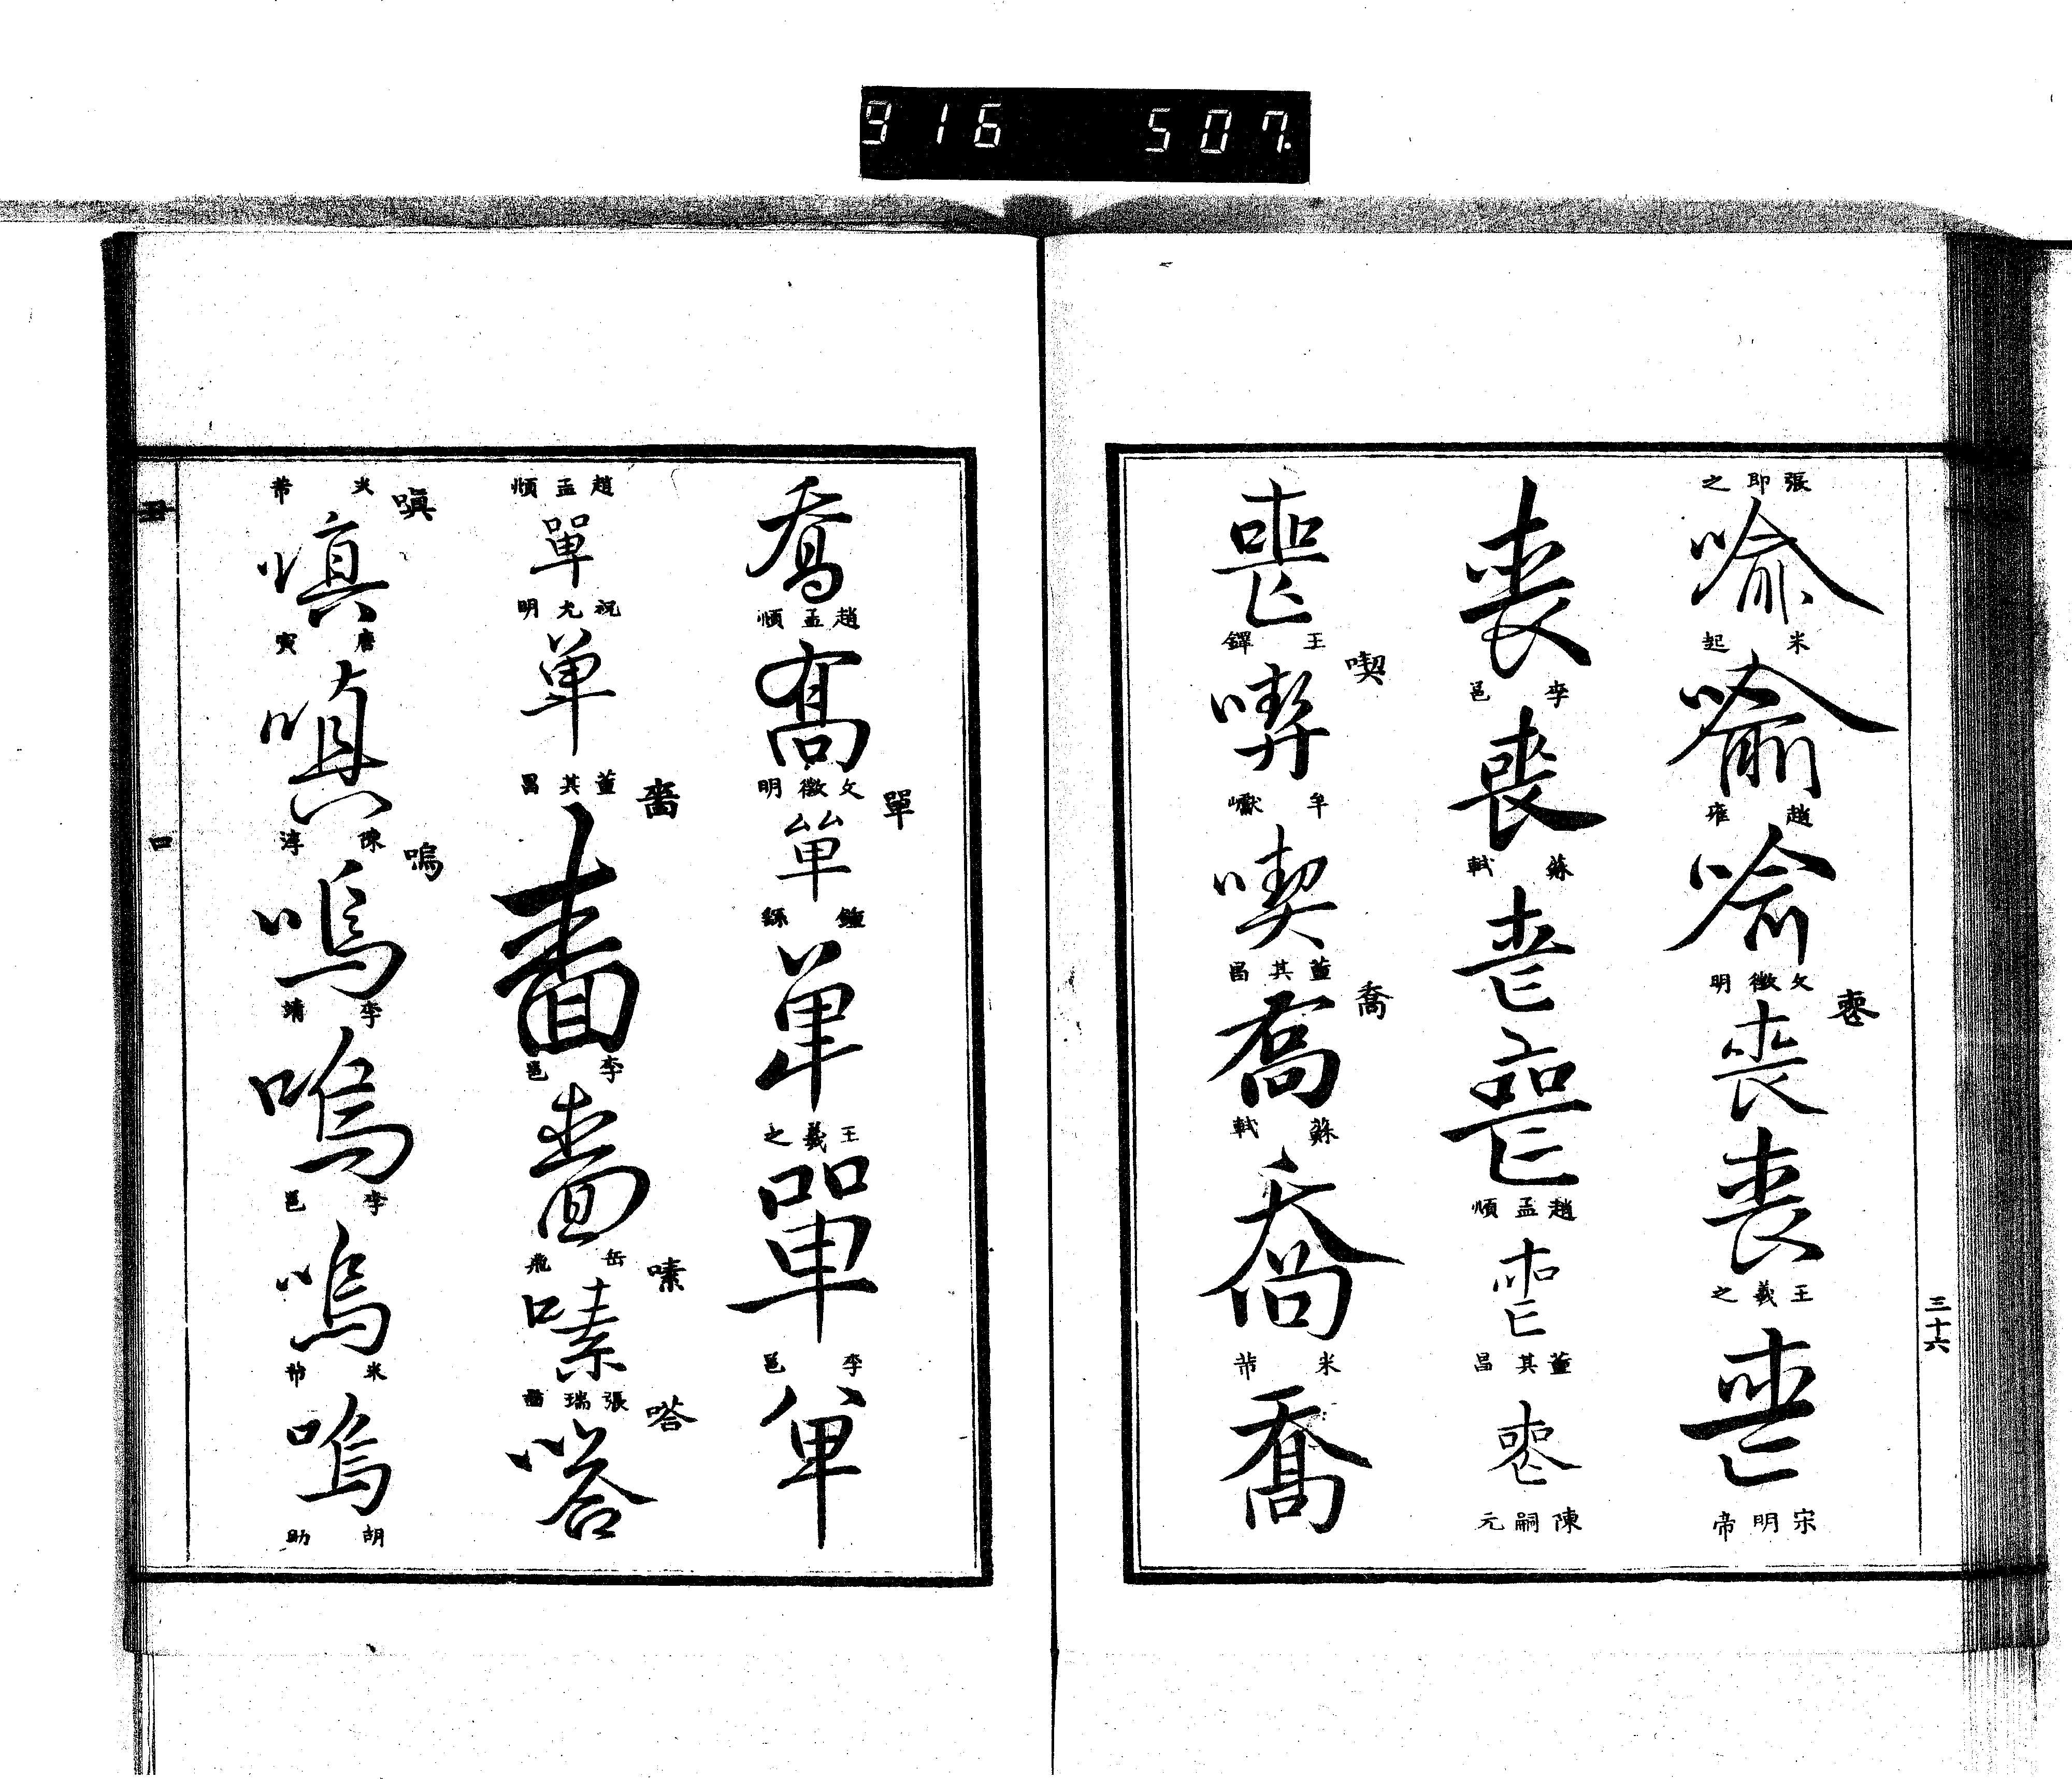 916 507.
三十六
張即之
喻
米
起
喻
趙
雍
喻
文徵明
喪
喪
喪
王羲之
喪
宋明帝
喪
李
邕
喪
蘇
軾
喪
喪
趙孟頫
喪
董其昌
喪
陳嗣元
喪
王
鐸
喫
喫
牟
巘
喫
董其昌
喬
喬
蘇
軾
喬
米
芾
喬
喬
趙孟頫
喬
文徵明
單
單
鍾
繇
單
王羲之
單
李
邕
單
趙孟頫
單
祝允明
單
董其昌
嗇
嗇
李
邕
嗇
岳
飛
嗉
嗉
張瑞圖
嗒
嗒
米
芾
嗔
嗔
唐
寅
嗔
陳
淳
嗚
嗚
李
靖
嗚
李
邕
嗚
米
芾
嗚
胡
助
口